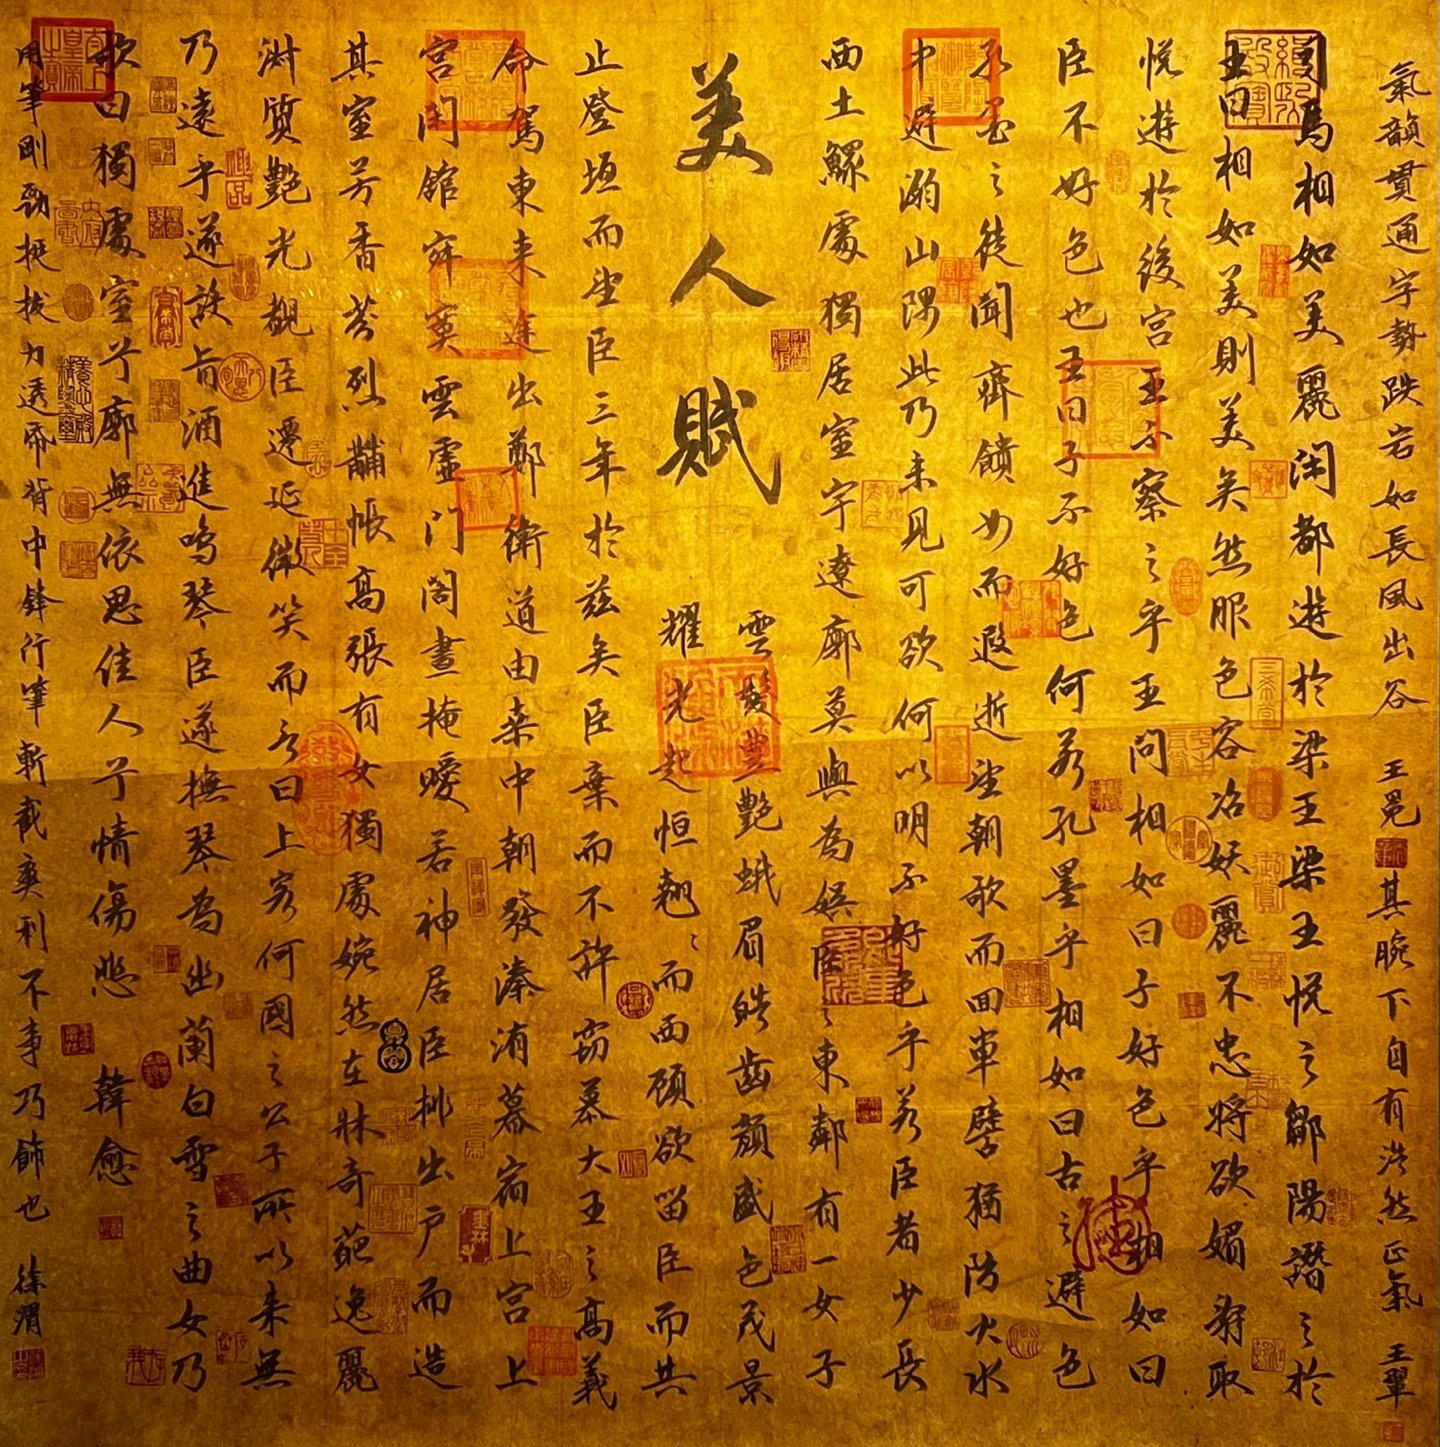 氣韻貫通字勢跌宕如長風出谷 王冕 其腕下自有浩然正氣 王翬
司馬相如美麗閑都遊於梁王梁王悅之鄒陽譖之於
王曰相如美則美矣然服色容冶妖麗不忠將欲媚辭取
悅遊於後宮王不察之乎王問相如曰子好色乎相如曰
臣不好色也王曰子不好色何若孔墨乎相如曰古之避色
孔墨之徒聞齊饋女而遐逝望朝歌而回車譬猶防火水
中避溺山隅此乃未見可欲何以明不好色乎若臣者少長
西土鰥處獨居室宇遼廓莫與為娛臣之東鄰有一女子
美人賦
雲髮豐艷蛾眉皓齒顏盛色茂景
耀光起恒翹〻而西顧欲留臣而共
止登垣而望臣三年於茲矣臣棄而不許竊慕大王之高義
命駕東來途出鄭衛道由桑中朝發溱洧暮宿上宮上
宮閒館寂寞雲虛門閣晝掩曖若神居臣排出戶而造
其室芳香芬烈黼帳高張有女獨處婉然在牀奇葩逸麗
淑質艷光覩臣遷延微笑而言曰上客何國之公子所以來無
乃遠乎遂設旨酒進鳴琴臣遂撫琴為幽蘭白雪之曲女乃
歌曰獨處室兮廓無依思佳人兮情傷悲 韓愈
用筆剛勁挺拔力透紙背中鋒行筆斬截爽利不事乃飾也 徐渭